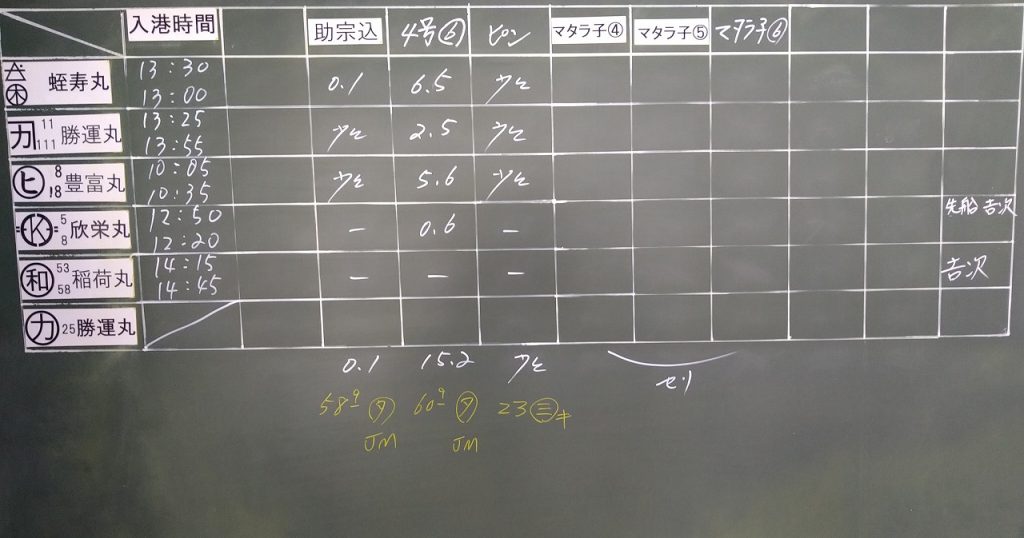 入港時間 助宗込 4号⑥ ピン マタラ子④ マタラ子⑤ マタラ子⑥
蛭寿丸 13:30 0.1 6.5 少々
13:00
カ 11 勝運丸 13:25 少々 2.5 少々
111 13:55
ヒ 8 豊富丸 10:05 少々 5.6 少々
18 10:35
K 5 欣栄丸 12:50 － 0.6 － 先船 吉次
8 12:20
和 53 稲荷丸 14:15 － － － 吉次
58 14:45
カ 25 勝運丸
0.1 15.2 少々 セリ
58 60 23 ㊂
JM JM